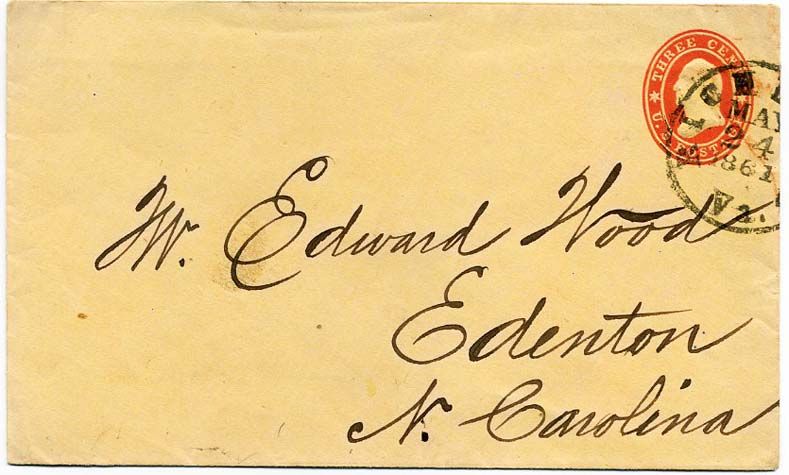 THREE CEN
U.S. POSTAG
MAY
24
1861
Va.
Mr. Edward Wood
Edenton
N. Carolina